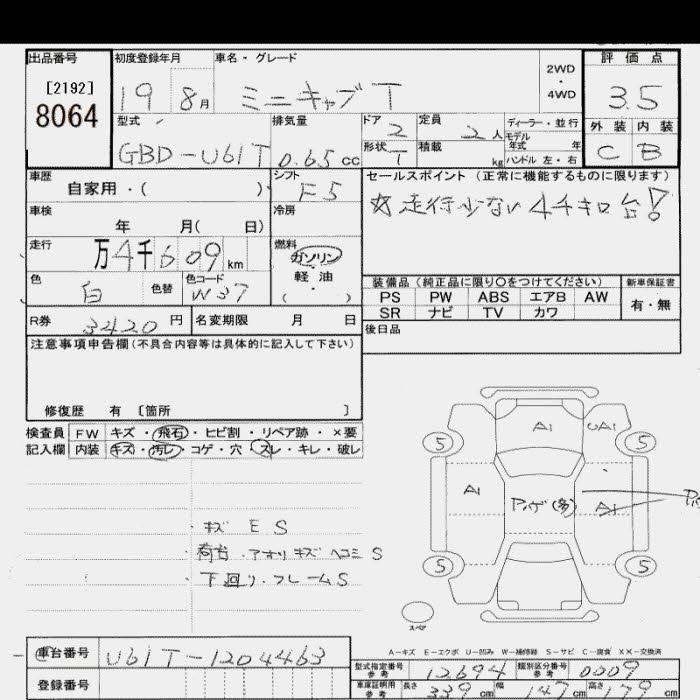 出品番号 初度登録年月 車名・グレード 評価点
[2192]
8064 19 8月 ミニキャブT 2WD・4WD 3.5
型式 排気量 ドア 2 定員 2人 ディーラー・並行 外装 内装
GBD-U61T 0.65cc 形状 1 積載 kg モデル年式 年 ハンドル 左・右 C B
車歴 シフト セールスポイント (正常に機能するものに限ります)
自家用・( ) F5 ☆走行少ない4千キロ台!
車検 冷房
年 月( 日)
走行 燃料
万4千609km ガソリン・軽油
色 白 色替 色コード W37 ( )
装備品(純正品に限り〇をつけてください) 新車保証書
PS PW ABS エアB AW 有・無
SR ナビ TV カワ
R券 3420円 名変期限 月 日 後日品
注意事項申告欄(不具合内容等は具体的に記入して下さい)
修復歴 有 〔箇所 〕
検査員 FW キズ・飛石・ヒビ割・リペア跡・×要
記入欄 内装 キズ・汚レ・コゲ・穴・スレ・キレ・破レ
A1 UA1
5 5
A1 A1
5 5
スペア
・キズ E S
・荷台・アオリキズヘコミS
・下廻り・フレームS
A-キズ E-エクボ U-凹み W-補修跡 S-サビ C-腐食 XX-交換済
車台番号 U61T-1204463
型式指定番号 参考 12694 類別区分番号 参考 0009
登録番号
車庫証明用 参考 長さ 339cm 幅 147cm 高さ 179cm